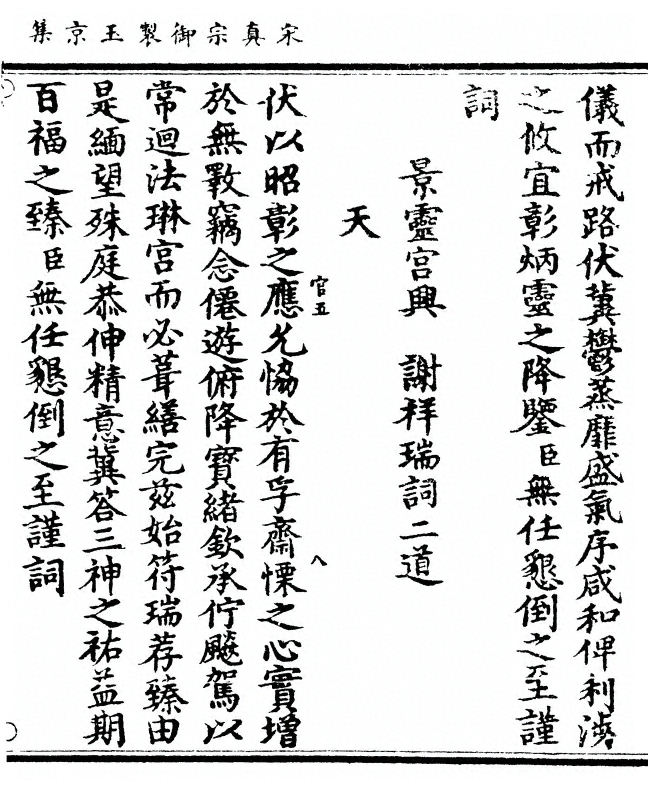 宋真宗御製玉京集
儀而戒路伏冀鬱蒸靡盛氣序咸和俾利涉
之攸宜彰炳靈之降鑒臣無任懇倒之至謹
詞
景靈宮興　謝祥瑞詞二道
天
官五　八
伏以昭彰之應允恊於有孚齋慄之心實增
於無斁竊念僊遊俯降寶緒欽承佇飈駕以
常迴法琳宮而必葺繕完茲始符瑞荐臻由
是緬望殊庭恭伸精意冀答三神之祐益期
百福之臻臣無任懇倒之至謹詞